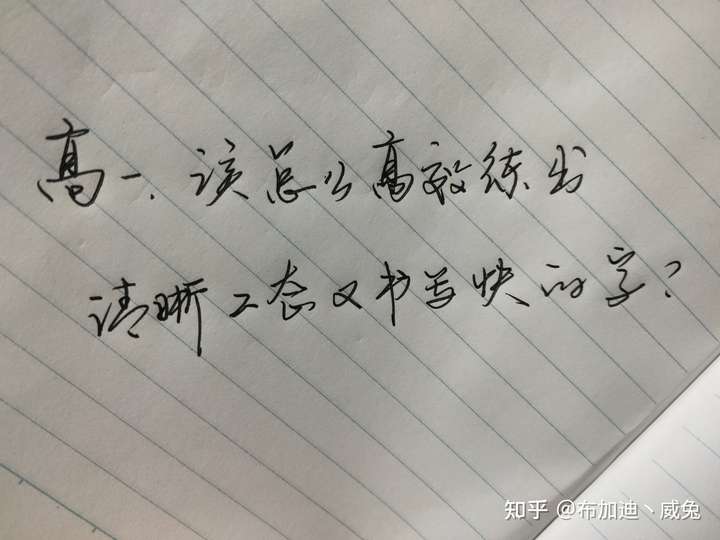 高一，该怎么高效练出
清晰工态又书写快的字？
知乎 @布加迪丶威兔